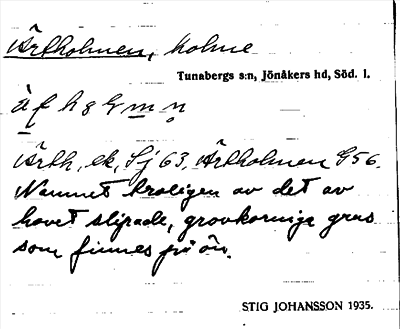 Ärtholmen, holme
Tunabergs s:n, Jönåkers hd, Söd. l.
Ärth, ek, Sj 63, Ärtholmen G 56.
Namnet troligen av det av
havet slipade, grovkorniga grus
som finnes på ön.
STIG JOHANSSON 1935.